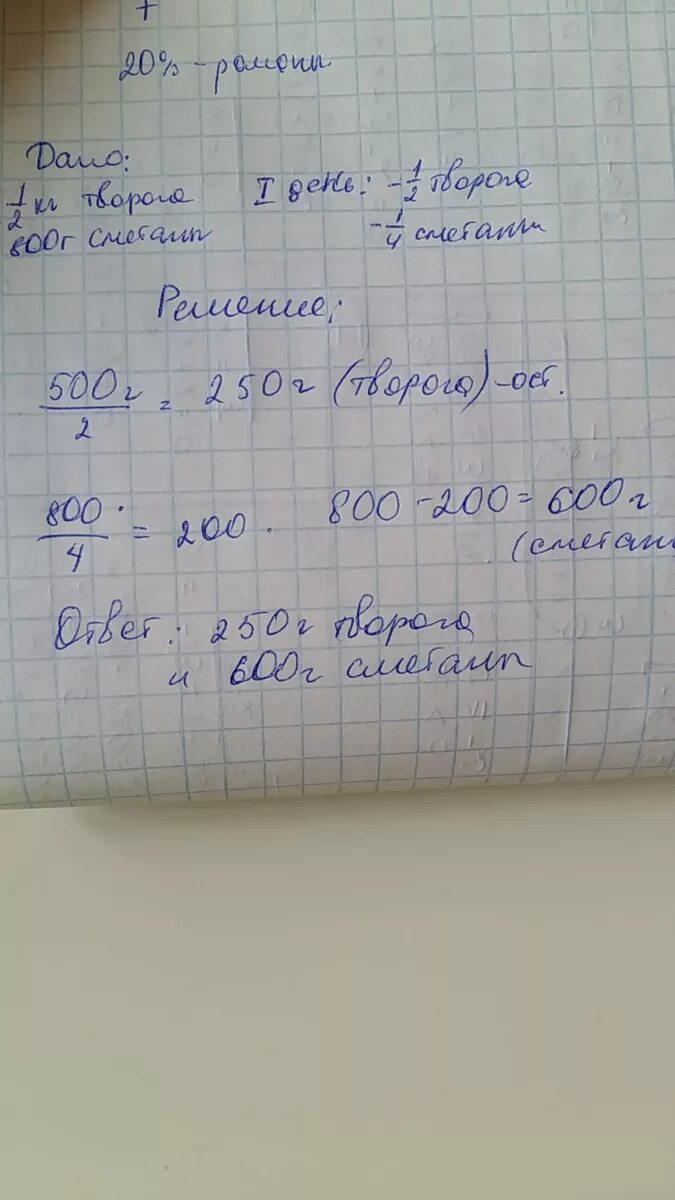 20% - романы
Дано:
1/2 кг творога
800г сметаны
I день: - 1/2 творога
- 1/4 сметаны
Решение:
500г/2 = 250г (творога) - ост.
800/4 = 200. 800 - 200 = 600г
(сметан
Ответ: 250г творога
и 600г сметаны